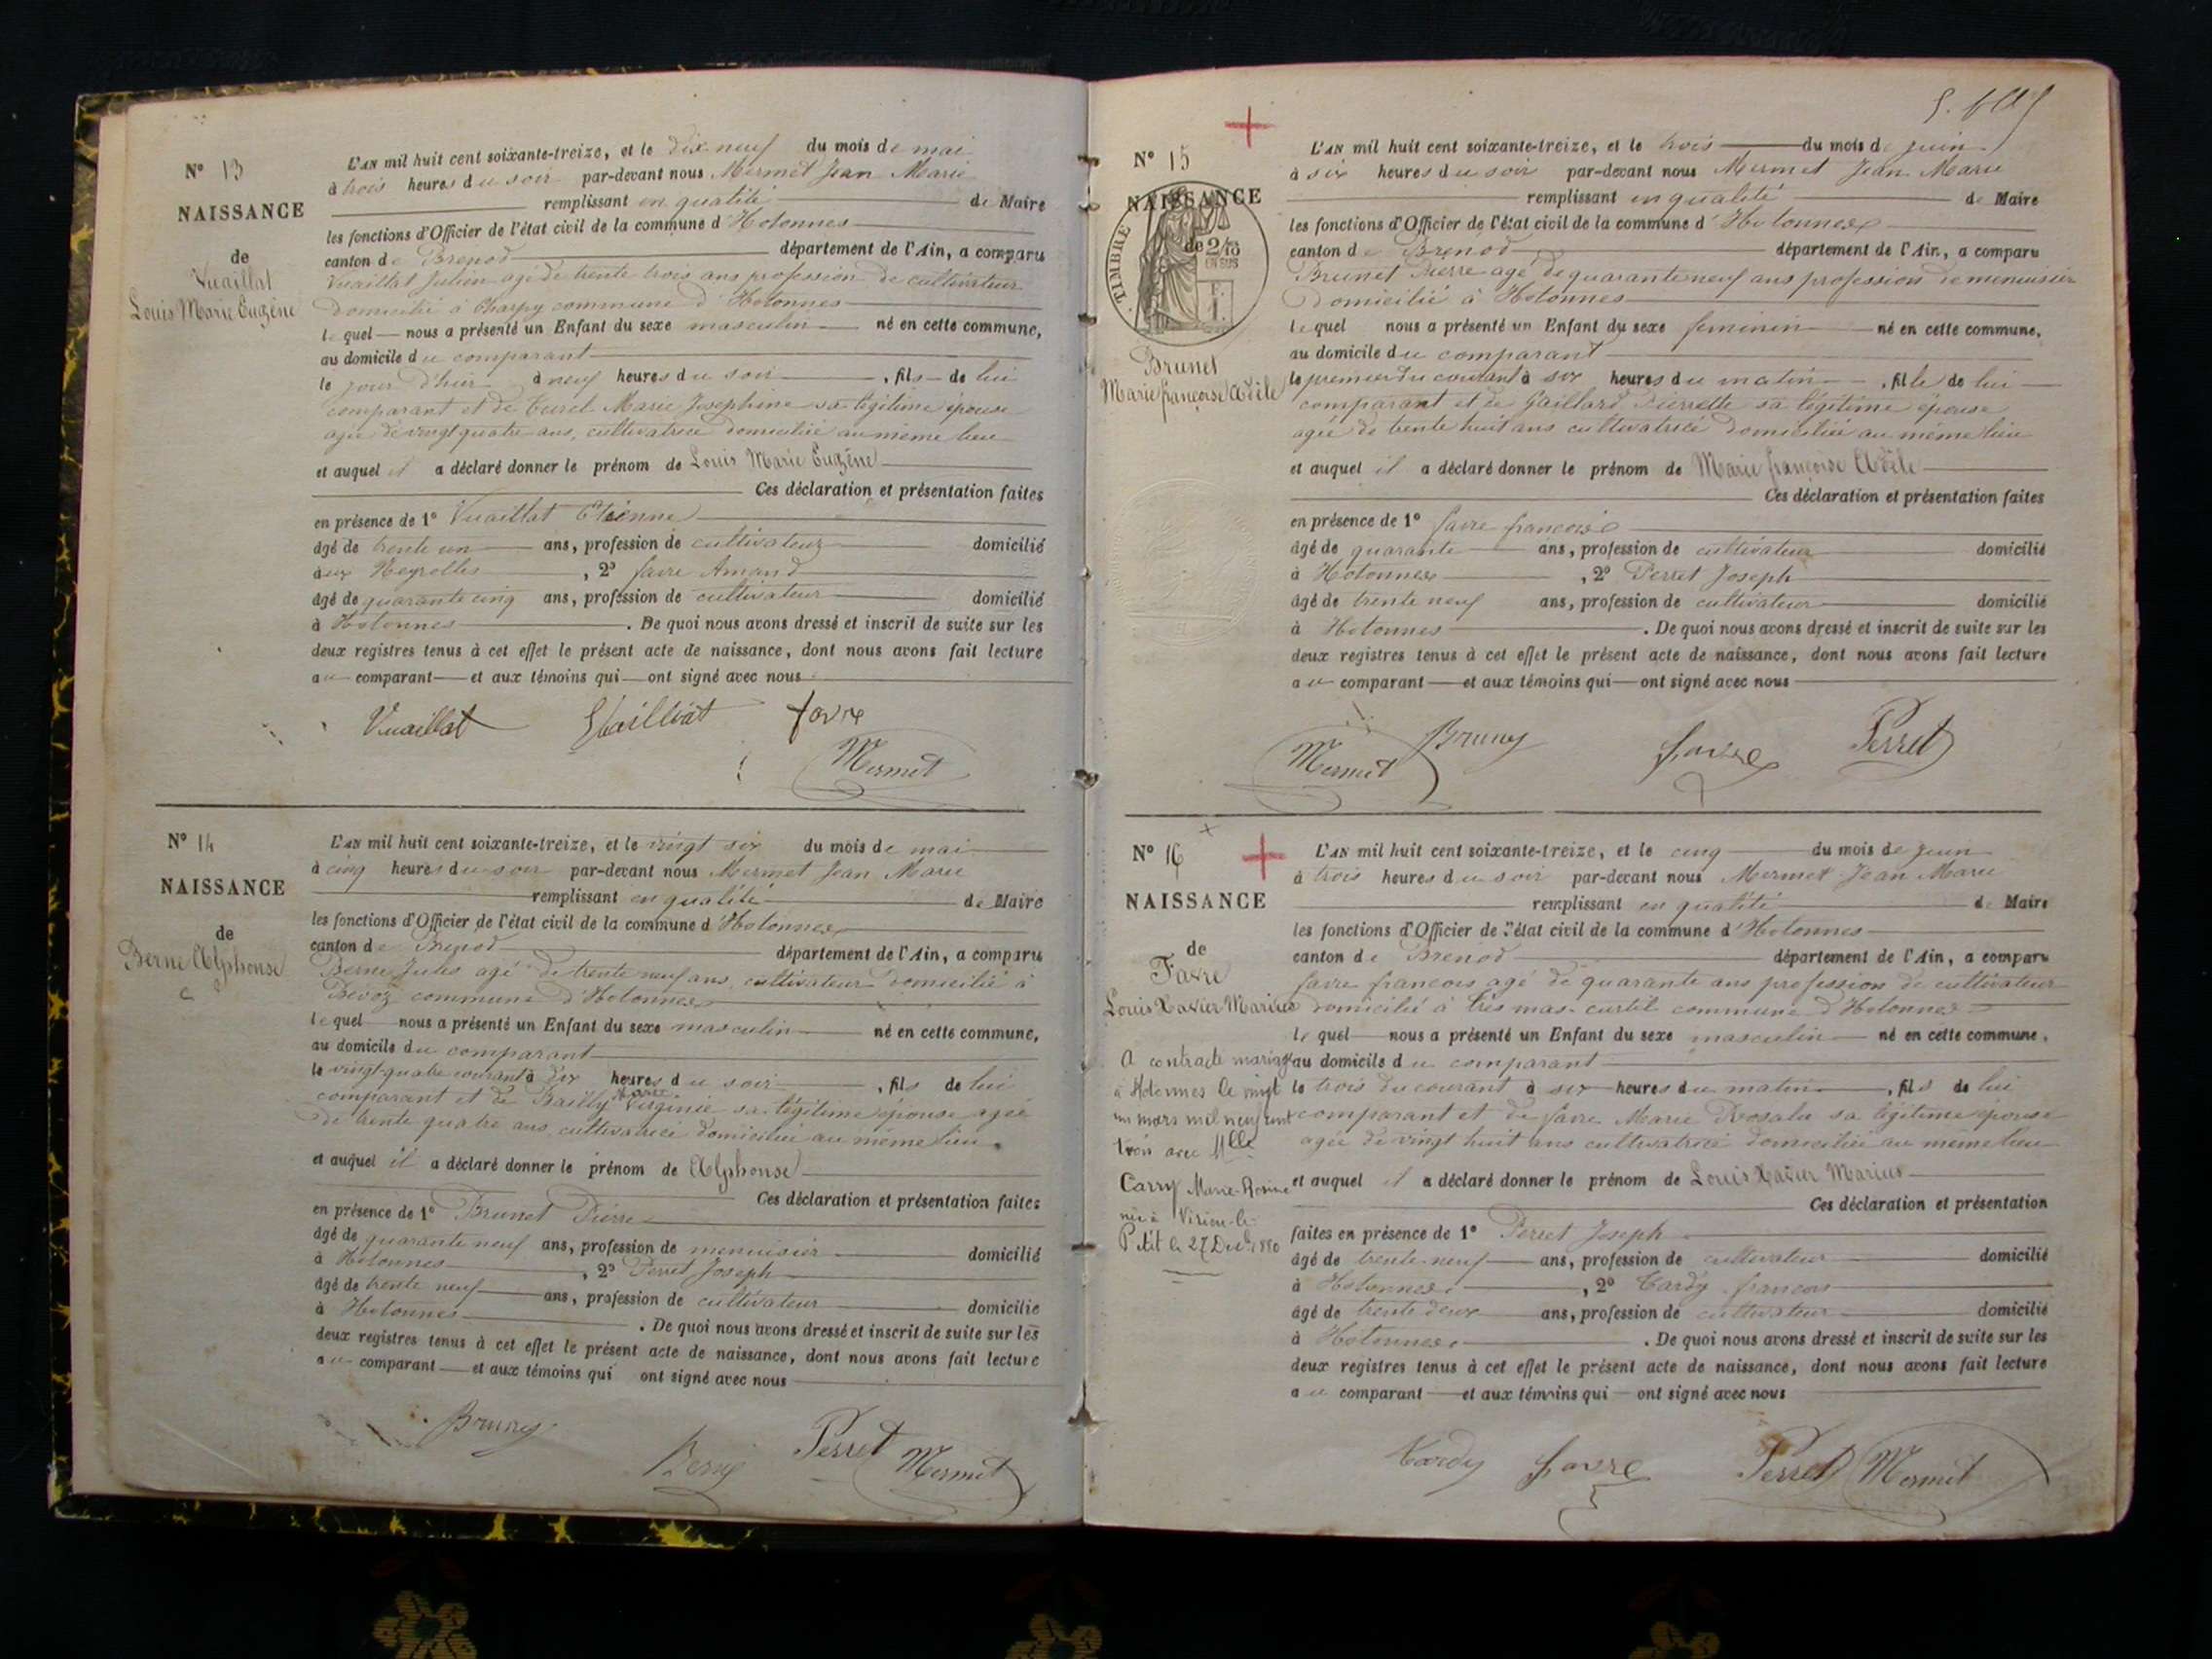 N° 13
NAISSANCE
de
Vuaillat
Louis Marie Eugène
L'AN mil huit cent soixante-treize, et le dix neuf du mois de mai
à trois heures du soir par-devant nous Mermet Jean Marie
remplissant en qualité de Maire
les fonctions d'Officier de l'état civil de la commune d'Hotonnes
canton de Brenod département de l'Ain, a comparu
Vuaillat Julien agé de trente trois ans profession de cultivateur
domicilié à Charpy commune d'Hotonnes
lequel nous a présenté un Enfant du sexe masculin né en cette commune,
au domicile du comparant
le jour d'hier à neuf heures du soir, fils de lui
comparant et de Marie Josephine sa légitime épouse
agée de vingt quatre ans, cultivatrice domiciliée au même lieu
et auquel il a déclaré donner le prénom de Louis Marie Eugène
Ces déclaration et présentation faites
en présence de 1° Vuaillat Etienne
âgé de trente un ans, profession de cultivateur domicilié
aux Neyrolles, 2° favre Amand
âgé de quarante cinq ans, profession de cultivateur domicilié
à Hotonnes. De quoi nous avons dressé et inscrit de suite sur les
deux registres tenus à cet effet le présent acte de naissance, dont nous avons fait lecture
au comparant et aux témoins qui ont signé avec nous
Vuaillat favre
Mermet
N° 14
NAISSANCE
de
Berne Alphonse
L'AN mil huit cent soixante-treize, et le vingt six du mois de mai
à cinq heures du soir par-devant nous Mermet Jean Marie
remplissant en qualité de Maire
les fonctions d'Officier de l'état civil de la commune d'Hotonnes
canton de Brenod département de l'Ain, a comparu
Berne Jules agé de trente neuf ans, cultivateur domicilié à
commune d'Hotonnes
lequel nous a présenté un Enfant du sexe masculin né en cette commune,
au domicile du comparant
le vingt-quatre courant à dix heures du soir, fils de lui
Marie
comparant et de Bailly Virginie sa légitime épouse agée
de trente quatre ans, cultivatrice domiciliée au même lieu
et auquel il a déclaré donner le prénom de Alphonse
Ces déclaration et présentation faites
en présence de 1° Brunet Pierre
âgé de quarante neuf ans, profession de menuisier domicilié
à Hotonnes, 2° Perret Joseph
âgé de trente neuf ans, profession de cultivateur domicilié
à Hotonnes. De quoi nous avons dressé et inscrit de suite sur les
deux registres tenus à cet effet le présent acte de naissance, dont nous avons fait lecture
au comparant et aux témoins qui ont signé avec nous
Brunet
Berne Perret Mermet
N° 15
NAISSANCE
de 2/10
EN SUS
TIMBRE
F.
1.
Brunet
Marie françoise Adèle
L'AN mil huit cent soixante-treize, et le trois du mois de juin
à six heures du soir par-devant nous Mermet Jean Marie
remplissant en qualité de Maire
les fonctions d'Officier de l'état civil de la commune d'Hotonnes
canton de Brenod département de l'Ain, a comparu
Brunet Pierre agé de quarante neuf ans profession de menuisier
domicilié à Hotonnes
lequel nous a présenté un Enfant du sexe feminin né en cette commune,
au domicile du comparant
le premier du courant à six heures du matin, fille de lui
comparant et de Gaillard Pierrette sa légitime épouse
agée de trente huit ans cultivatrice domiciliée au même lieu
et auquel il a déclaré donner le prénom de Marie françoise Adèle
Ces déclaration et présentation faites
en présence de 1° favre françois
âgé de quarante ans, profession de cultivateur domicilié
à Hotonnes, 2° Perret Joseph
âgé de trente neuf ans, profession de cultivateur domicilié
à Hotonnes. De quoi nous avons dressé et inscrit de suite sur les
deux registres tenus à cet effet le présent acte de naissance, dont nous avons fait lecture
au comparant et aux témoins qui ont signé avec nous
Mermet Brunet favre Perret
N° 16
NAISSANCE
de
Favre
Louis Xavier Marius
A contracté mariage
à Hotonnes le vingt
un mars mil neuf cent
trois avec Mlle
Carry Marie-Rosine
née à Virieu-le-
Petit le 27 Déc. 1880
L'AN mil huit cent soixante-treize, et le cinq du mois de juin
à trois heures du soir par-devant nous Mermet Jean Marie
remplissant en qualité de Maire
les fonctions d'Officier de l'état civil de la commune d'Hotonnes
canton de Brenod département de l'Ain, a comparu
favre francois agé de quarante ans profession de cultivateur
domicilié à commune d'Hotonnes
lequel nous a présenté un Enfant du sexe masculin né en cette commune,
au domicile du comparant
le trois du courant à six heures du matin, fils de lui
comparant et de favre Marie Rosalie sa légitime épouse
agée de vingt huit ans cultivatrice domiciliée au même lieu
et auquel il a déclaré donner le prénom de Louis Xavier Marius
Ces déclaration et présentation
faites en présence de 1° Perret Joseph
âgé de trente neuf ans, profession de cultivateur domicilié
à Hotonnes, 2° Tardy francois
âgé de trente deux ans, profession de cultivateur domicilié
à Hotonnes. De quoi nous avons dressé et inscrit de suite sur les
deux registres tenus à cet effet le présent acte de naissance, dont nous avons fait lecture
au comparant et aux témoins qui ont signé avec nous
Tardy favre Perret Mermet